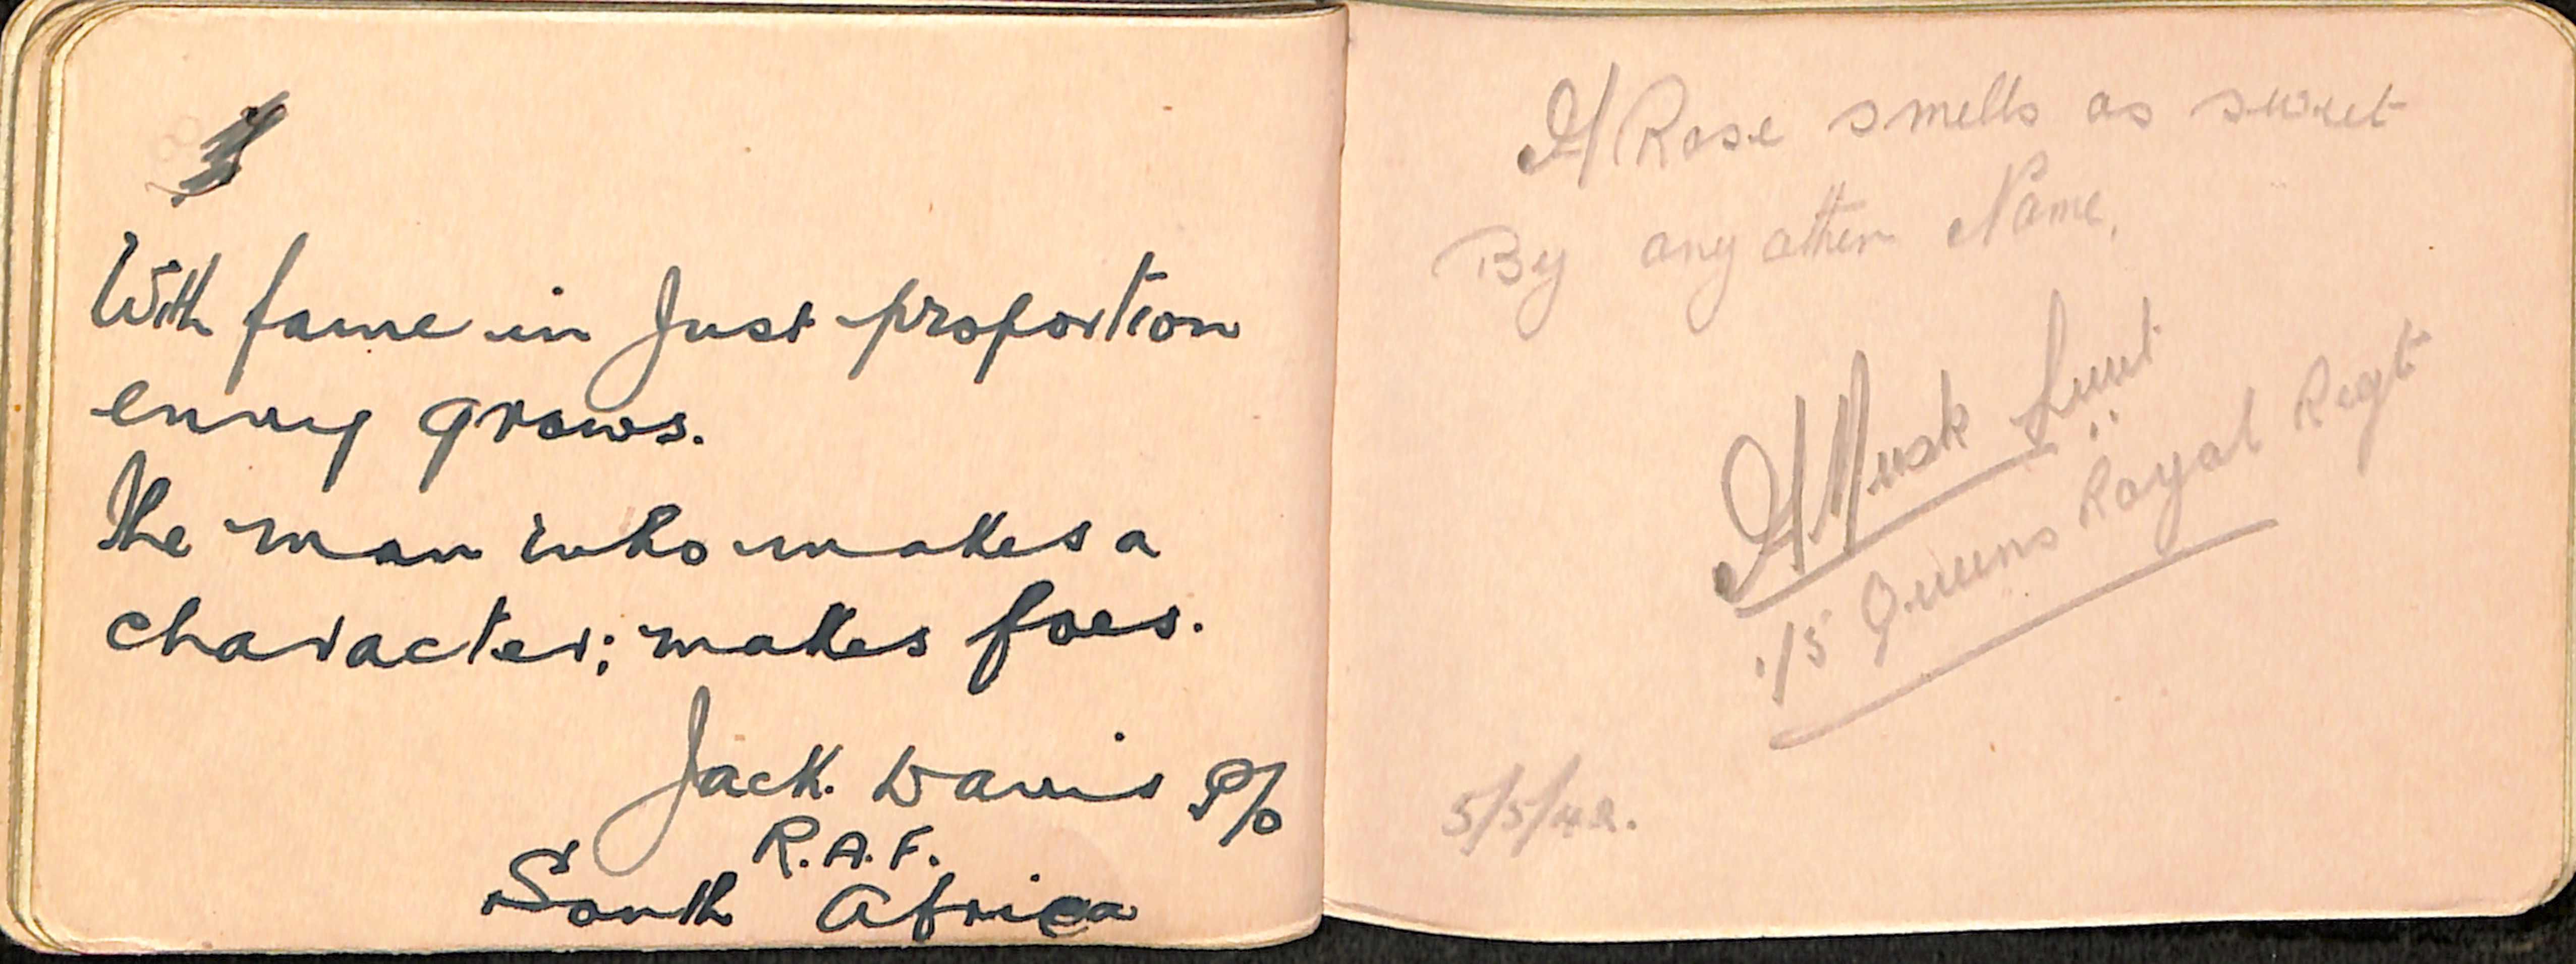 With fame in Just proportion
envy grows.
The man who makes a
character; makes foes.
Jack Davis P/O
R.A.F.
South Africa
A Rose smells as sweet
By any other Name.
A Musk Lieut
1/5 Queens Royal Regt
5/5/42.